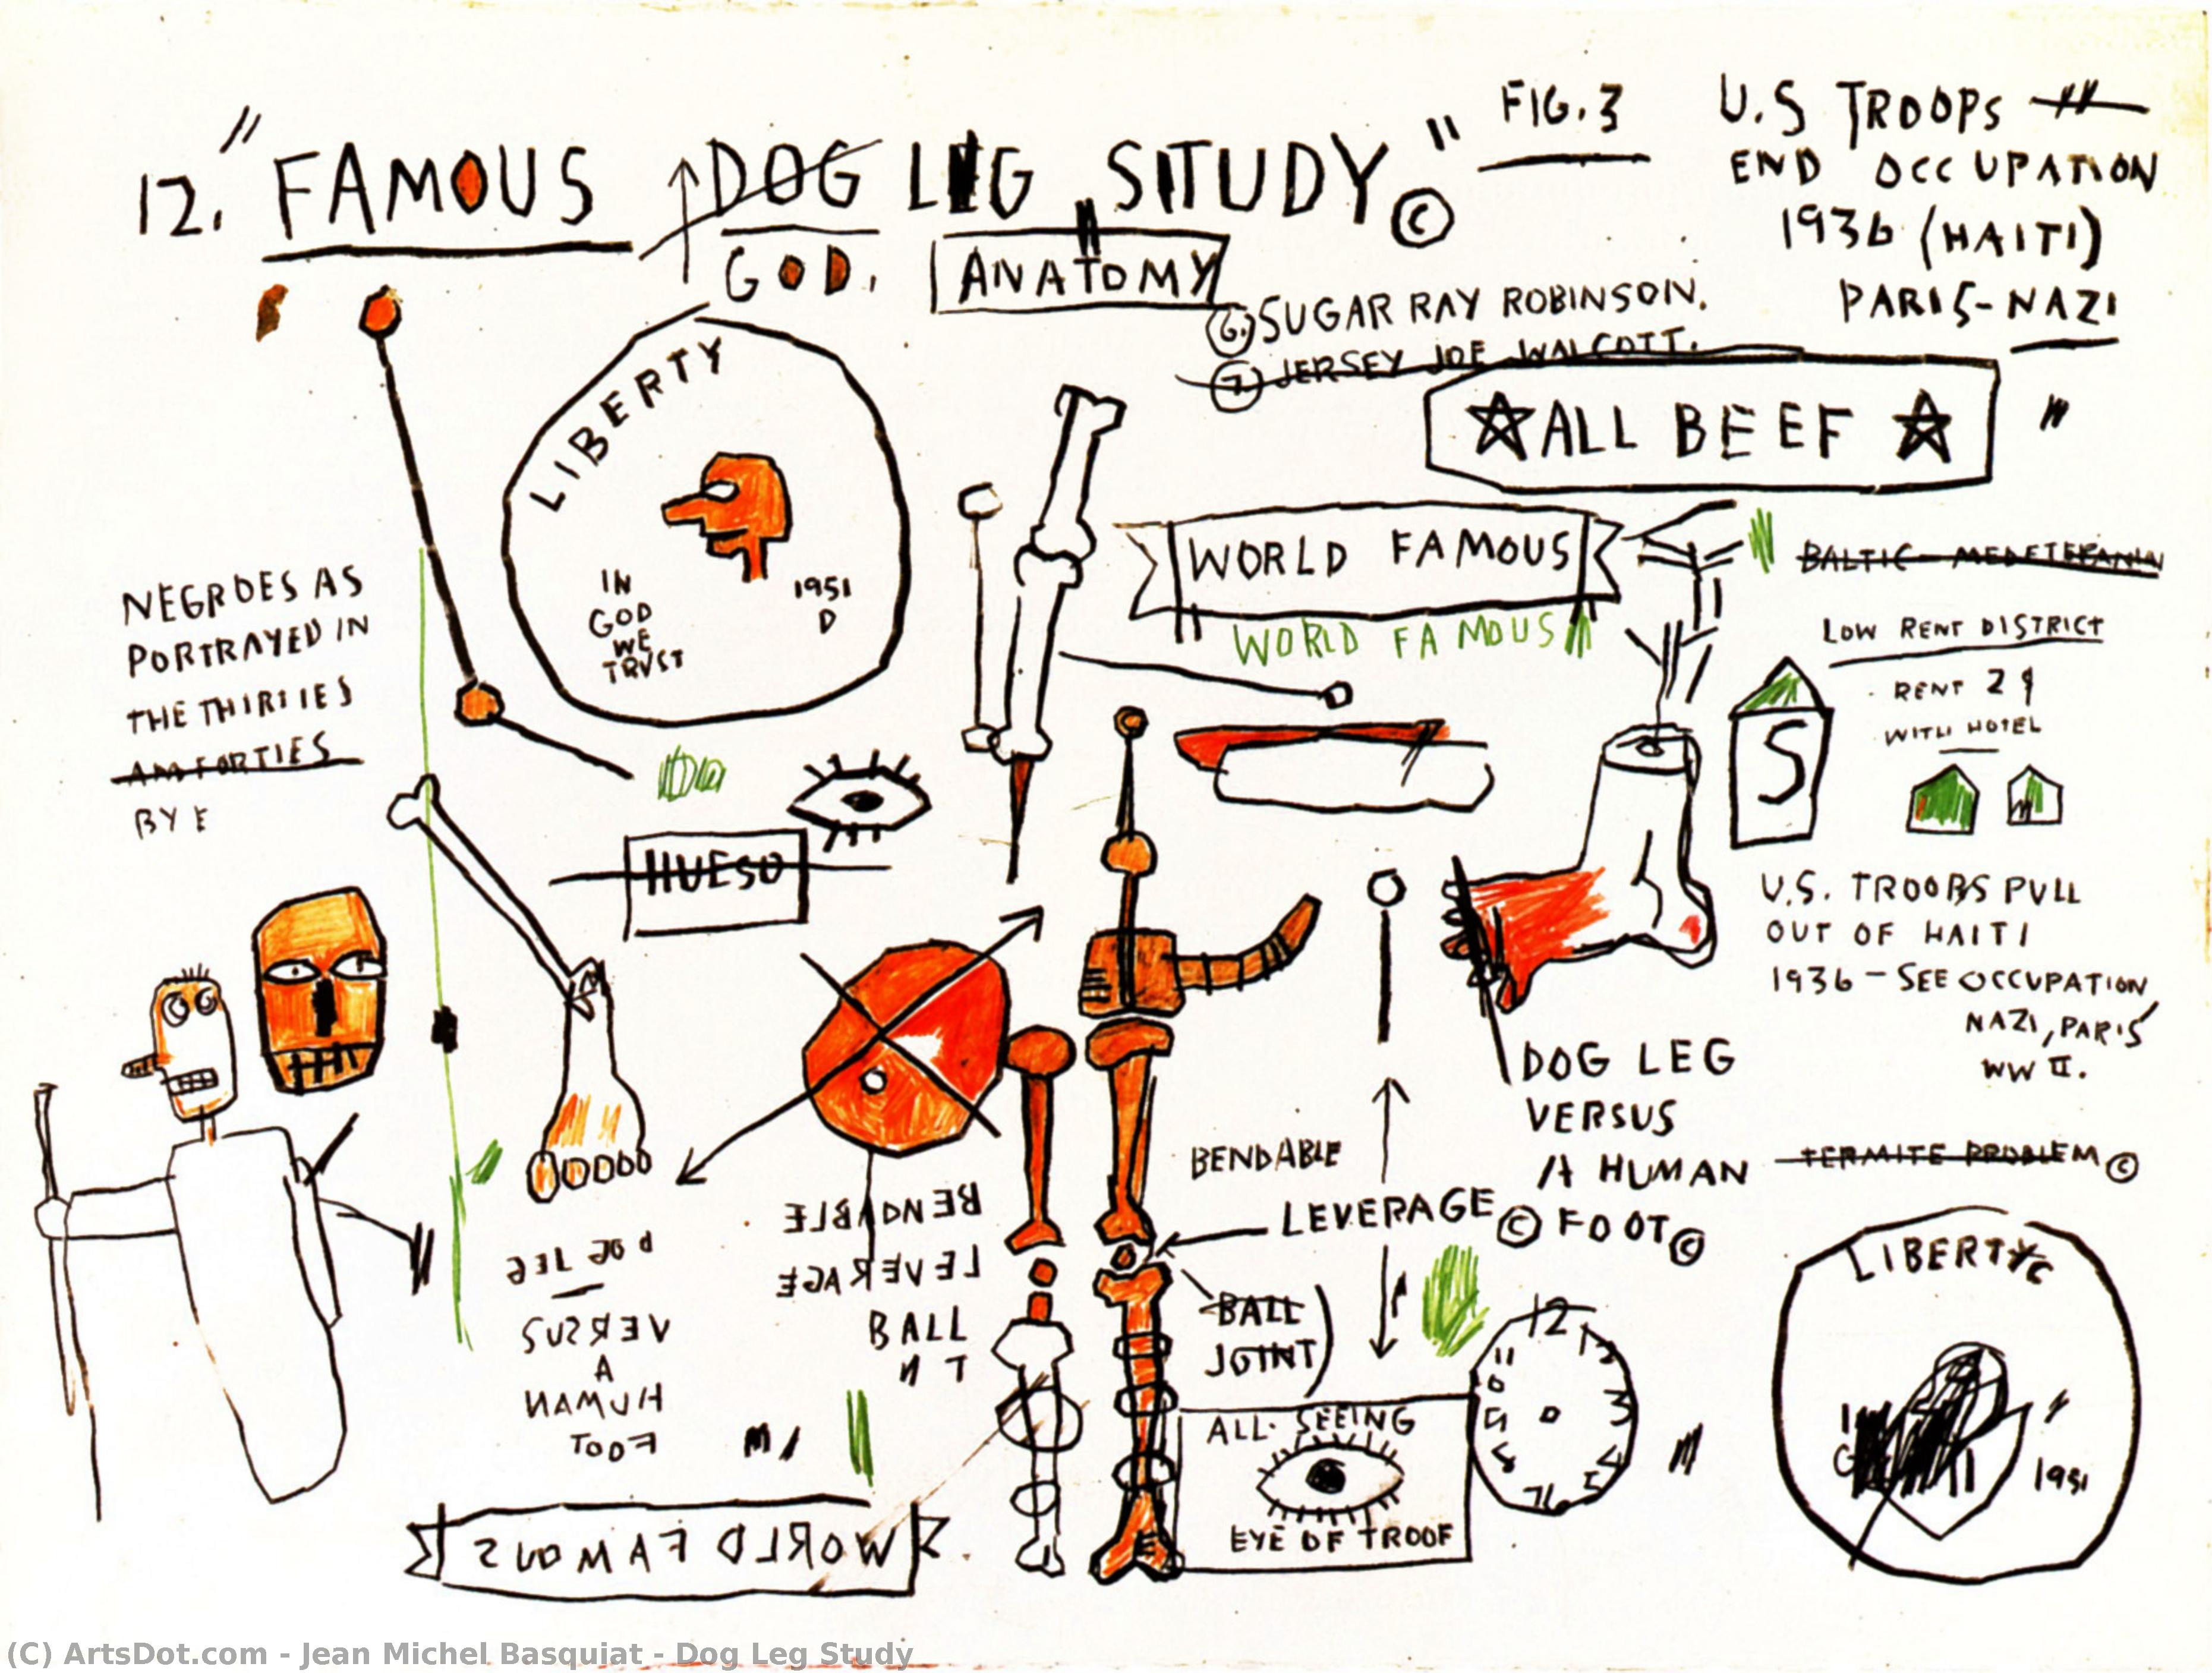 12. "FAMOUS DOG LEG STUDY" ©
GOD.
ANATOMY
FIG. 3
U.S TROOPS
END OCCUPATION
1936 (HAITI)
PARIS-NAZI
6. SUGAR RAY ROBINSON.
7. JERSEY JOE WALCOTT.
☆ALL BEEF☆
LIBERTY
IN
GOD
WE
TRVST
1951
D
WORLD FAMOUS
WORLD FAMOUS
BALTIC
LOW RENT DISTRICT
RENT 2
WITH HOTEL
S
NEGROES AS
PORTRAYED IN
THE THIRTIES
FORTIES
BY E
HUESO
U.S. TROOPS PULL
OUT OF HAITI
1936 - SEE OCCUPATION
NAZI, PARIS
WW II.
DOG LEG
VERSUS
A HUMAN
FOOT ©
TERMITE PROBLEM ©
BENDABLE
LEVERAGE ©
BALL
JOINT)
BENDABLE
LEVERAGE
BALL
N T
DOG LEG
VERSUS
A
HUMAN
FOOT
12
11
ALL. SEEING
EYE OF TROOF
LIBERTY
1951
WORLD FAMOUS
(C) ArtsDot.com - Jean Michel Basquiat - Dog Leg Study